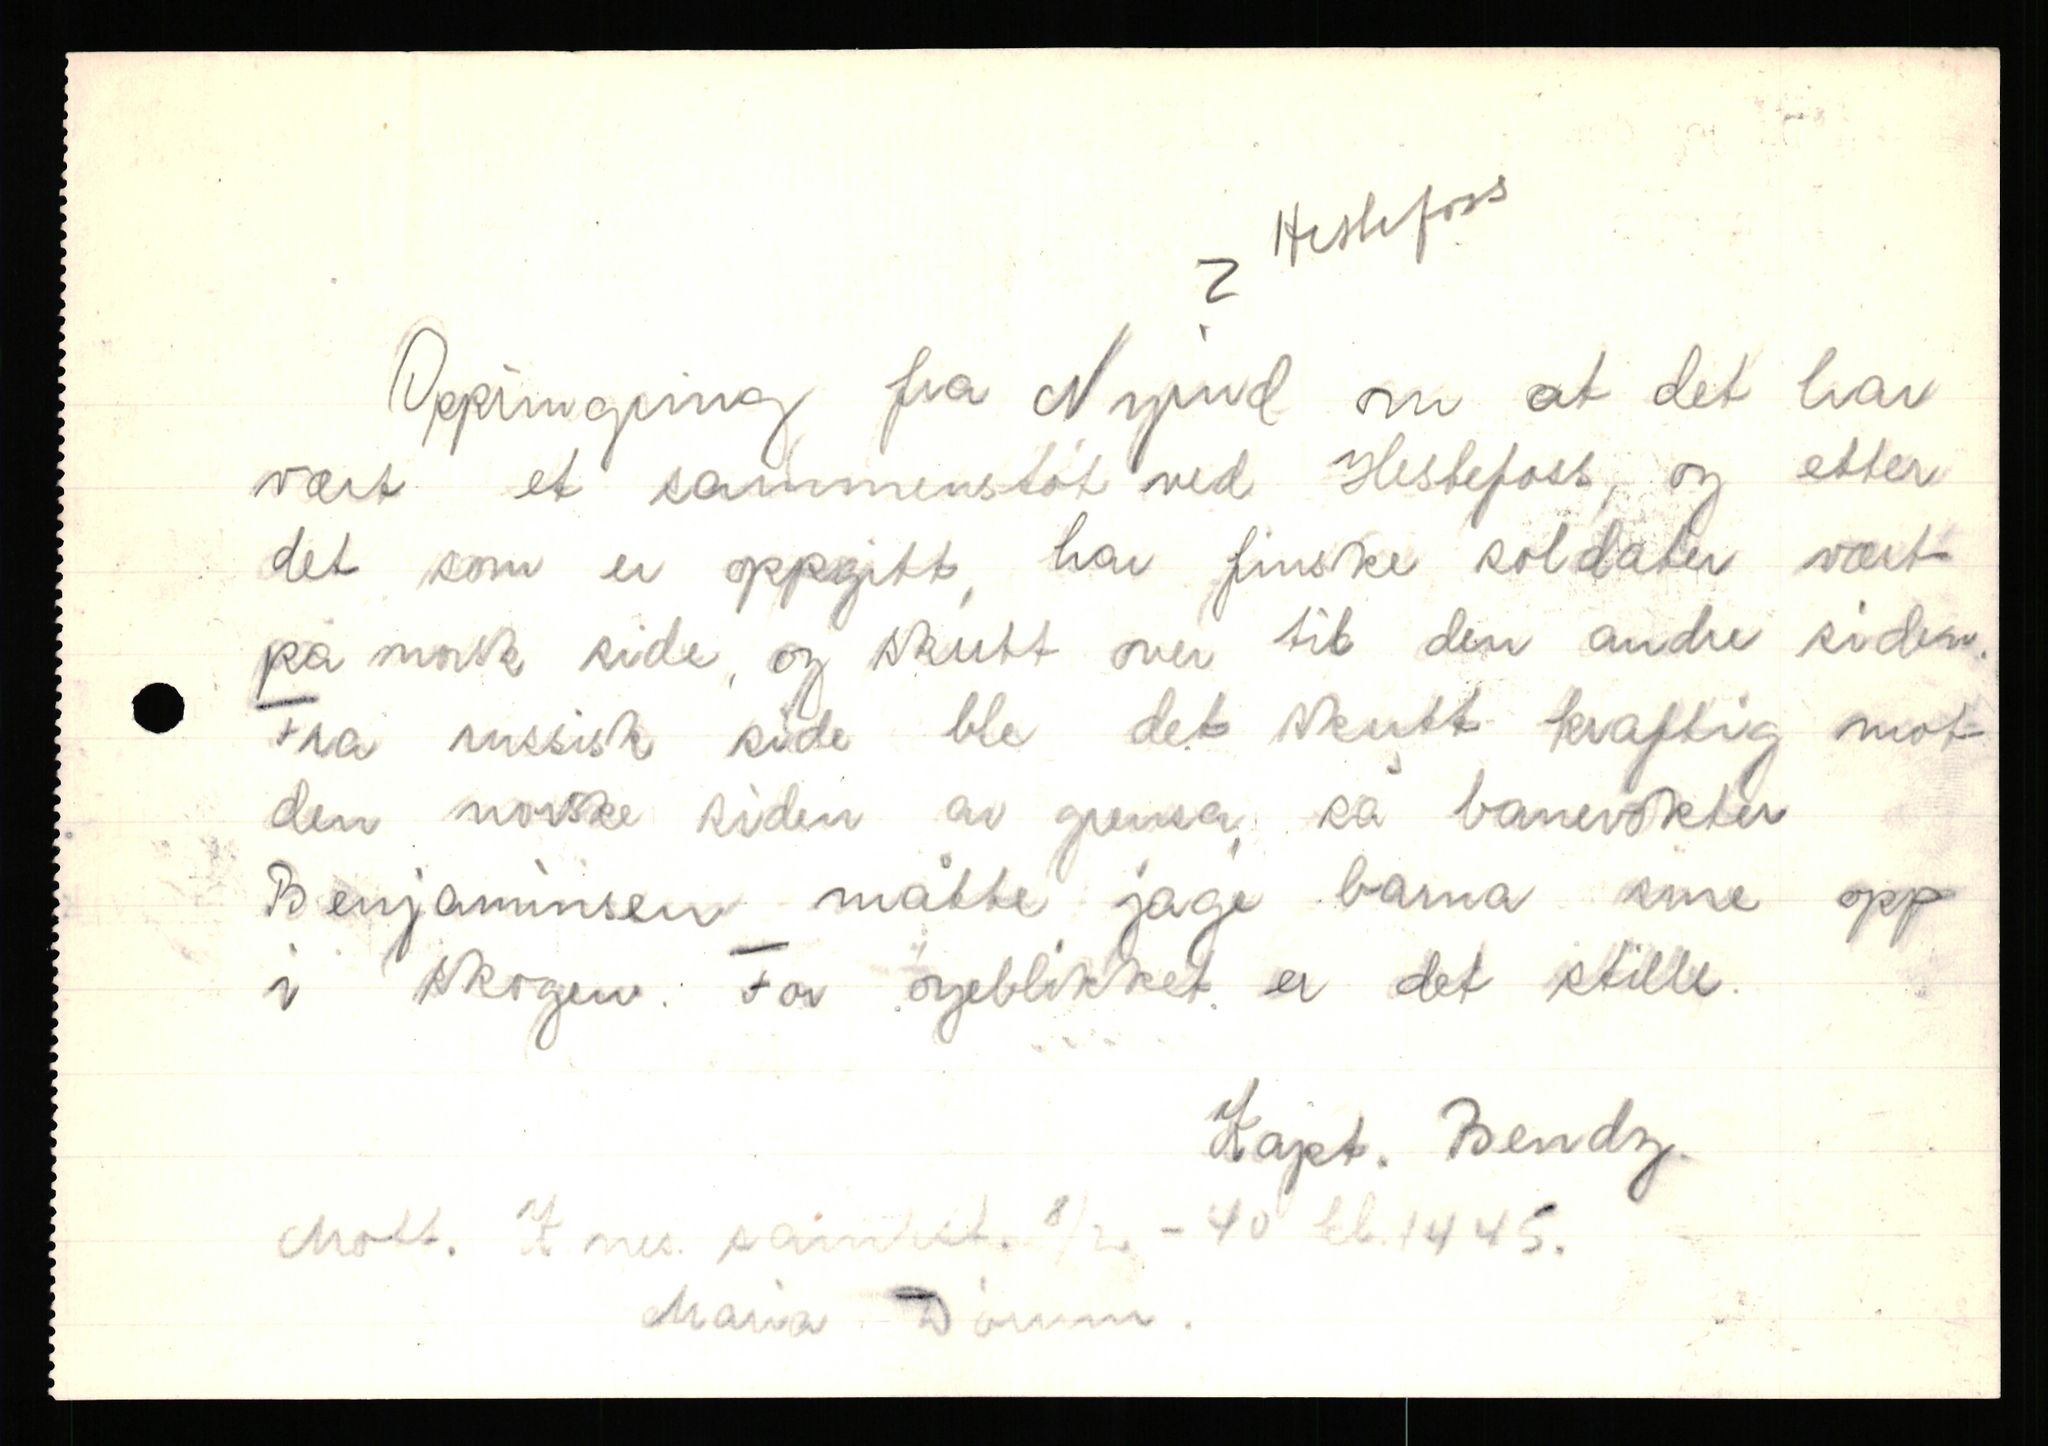 ? Hestefoss
Oppringning fra Nyrud om at det har
vært et sammenstöt ved Hestefoss, og etter
det som er oppgitt, har finske soldater vært
på norsk side, og skutt over til den andre siden.
Fra russisk side ble det skutt kraftig mot
den norske siden av grensa, så banevokter
Benjaminsen måtte jage barna sine opp
i skogen. For öyeblikket er det stille.
Kapt. Bendz.
Mott. Knes. 8/2 - 40 kl. 1445.
Maria